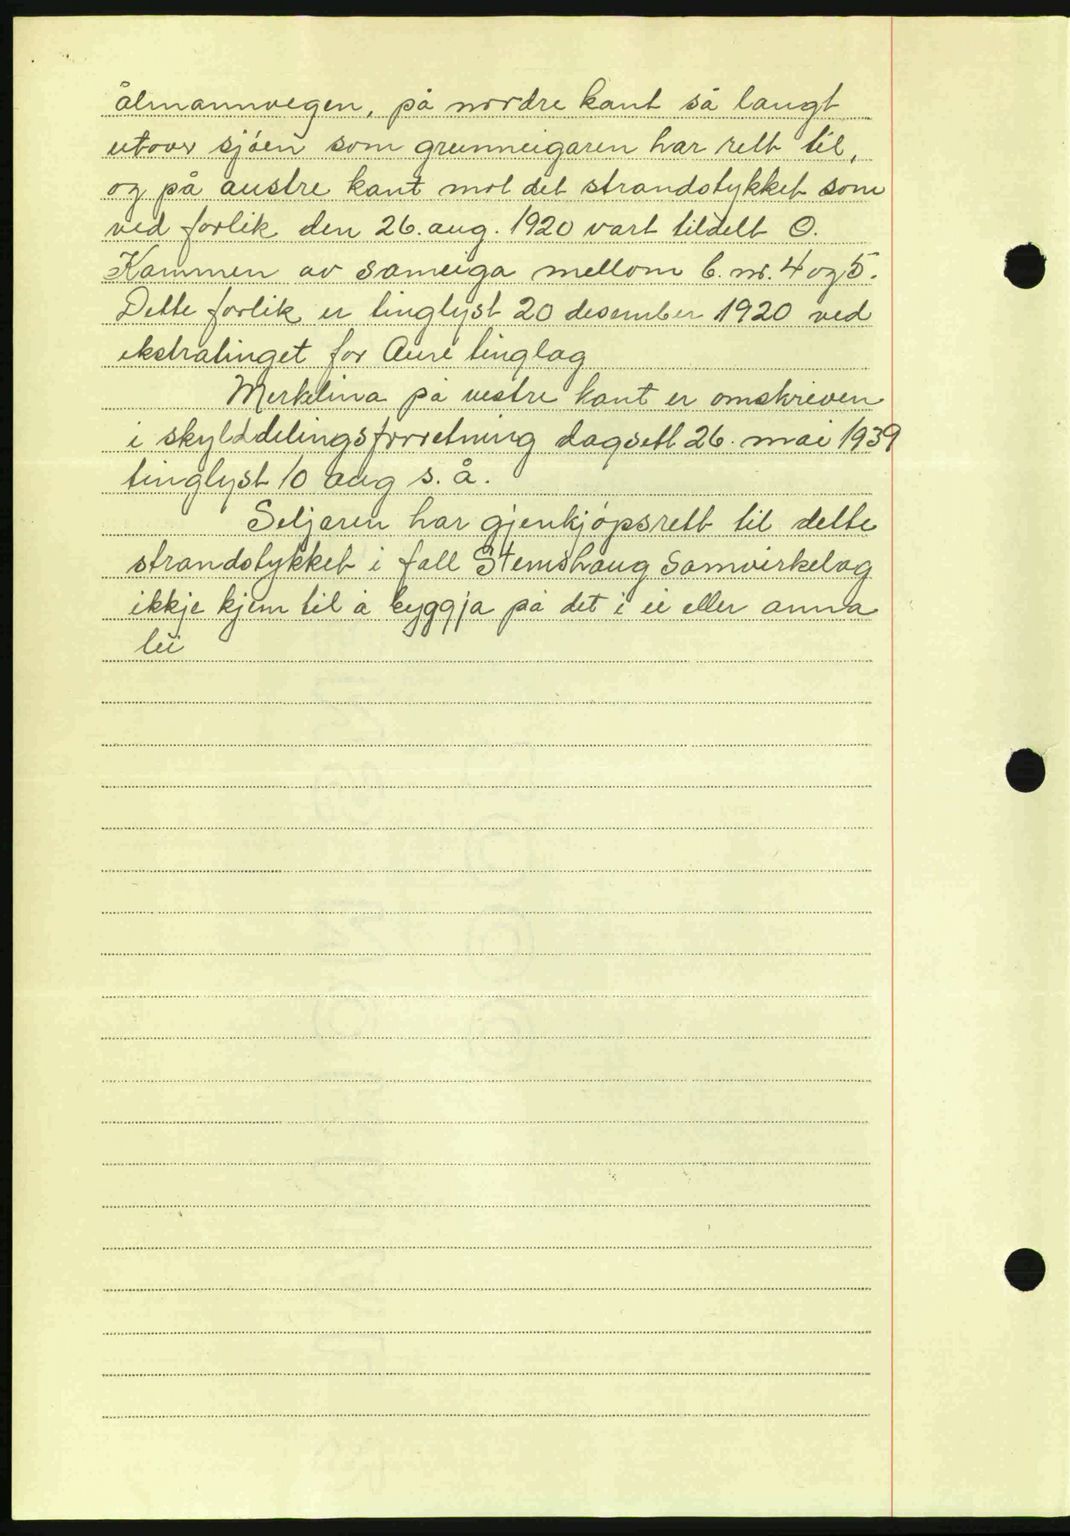 ålmannvegen, på nordre kant så langt
utover sjøen som grunneigaren har rett til,
og på austre kant mot det strandstykket som
ved forlik den 26. aug. 1920 vart tildelt O.
Kammen av sameiga mellom b. nr. 4 og 5.
Dette forlik er tinglyst 20 desember 1920 ved
ekstratinget for Aure tinglag
Merkelina på vestre kant er omskreven
i skylddelingsforretning dagsett 26. mai 1939
tinglyst 10 aug s. å.
Seljaren har gjenkjøpsrett til dette
strandstykket i fall Stemshaug Samvirkelag
ikkje kjem til å byggja på det i ei eller anna
lei